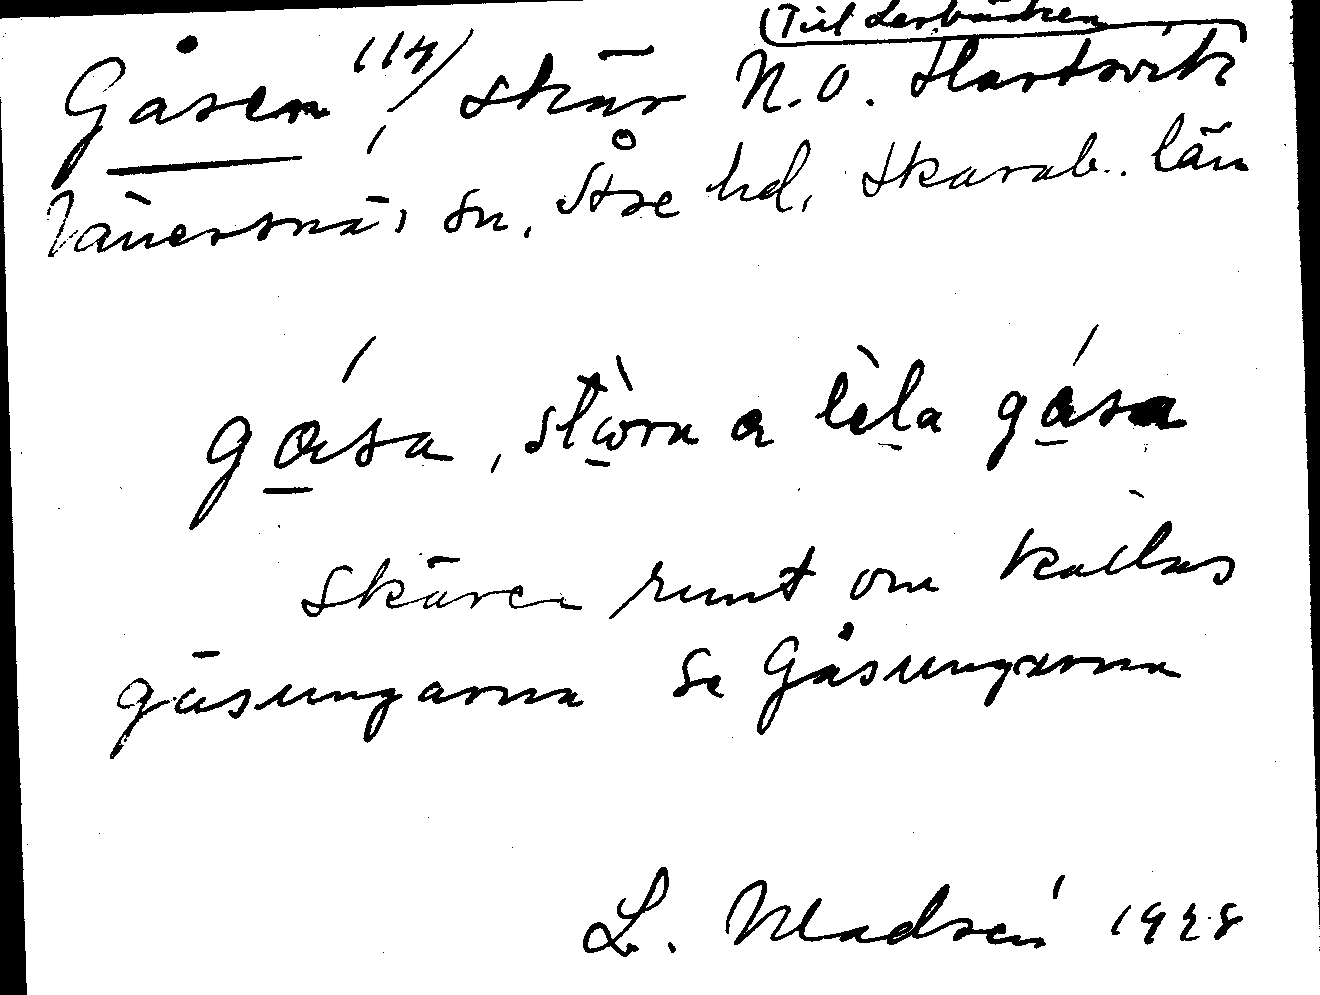 (Till Lerbäcken)
Gåsen, 114/ skär N.O. Hartsvik
Vänersnäs sn, Åse hd, Skarab. län
gása, stòra a lìla gása
Skären runt om kallas
gåsungarna Se Gåsungarna
L. Modsén 1928